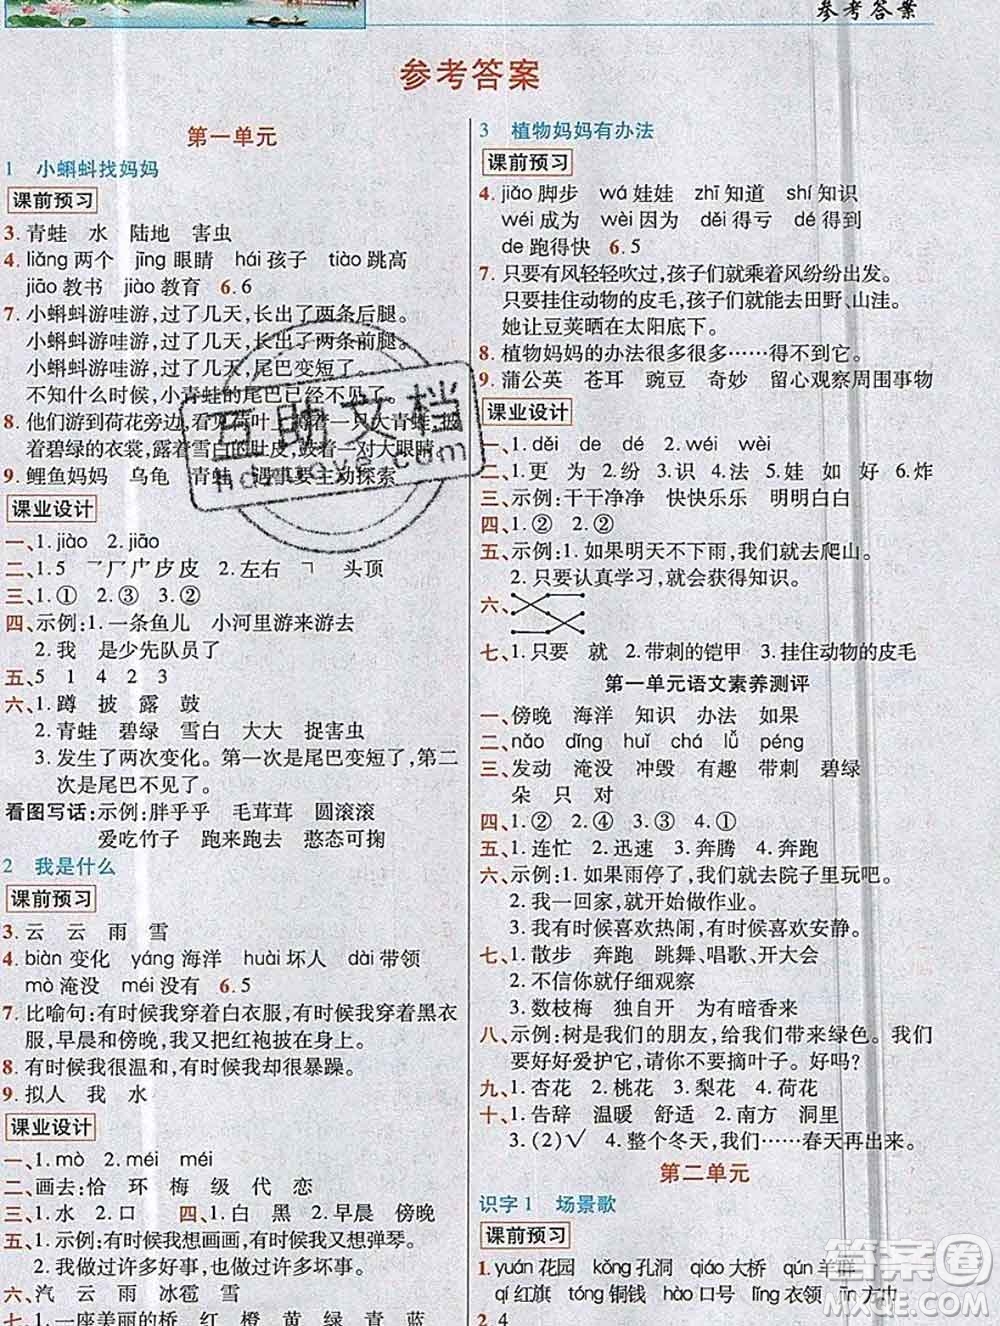 参考答案
参考答案
第一单元
1 小蝌蚪找妈妈
课前预习
3. 青蛙 水 陆地 害虫
4. liǎng 两个 jīng 眼睛 hái 孩子 tiào 跳高
jiāo 教书 jiào 教育 6. 6
7. 小蝌蚪游哇游,过了几天,长出了两条后腿。
小蝌蚪游哇游,过了几天,长出了两条前腿。
小蝌蚪游哇游,过了几天,尾巴变短了。
不知什么时候,小青蛙的尾巴已经不见了。
8. 他们游到荷花旁边,看见荷叶上蹲着一只大青蛙,披
着碧绿的衣裳,露着雪白的肚皮,鼓着一对大眼睛。
9. 鲤鱼妈妈 乌龟 青蛙 遇事要主动探索
课业设计
一、1. jiào 2. jiāo
二、1. 5 乛厂广皮皮 2. 左右 ㄱ 头顶
三、1. ① 2. ③ 3. ②
四、示例:1. 一条鱼儿 小河里游来游去
2. 我 是少先队员了
五、5 1 4 2 3
六、1. 蹲 披 露 鼓
2. 青蛙 碧绿 雪白 大大 捉害虫
3. 发生了两次变化。第一次是尾巴变短了,第二
次是尾巴不见了。
看图写话:示例:胖乎乎 毛茸茸 圆滚滚
爱吃竹子 跑来跑去 憨态可掬
2 我是什么
课前预习
3. 云 云 雨 雪
4. biàn 变化 yáng 海洋 huài 坏人 dài 带领
mò 淹没 méi 没有 6. 5
7. 比喻句:有时候我穿着白衣服,有时候我穿着黑衣
服,早晨和傍晚,我又把红袍披在身上。
8. 有时候我很温和,有时候我很暴躁。
9. 拟人 我 水
课业设计
一、1. mò 2. méi méi
二、画去:恰 环 梅 级 代 恋
三、1. 水 2. 口 四、1. 白 黑 2. 早晨 傍晚
五、1. 示例:有时候我想画画,有时候我想弹琴。
2. 我做过许多好事,也做过许多坏事。
六、汽 云 雨 冰雹 雪
七、1. 一座美丽的桥 红 橙 黄 绿 青 蓝
3 植物妈妈有办法
课前预习
4. jiǎo 脚步 wá 娃娃 zhī 知道 shí 知识
wéi 成为 wèi 因为 děi 得亏 dé 得到
de 跑得快 6. 5
7. 只要有风轻轻吹过,孩子们就乘着风纷纷出发。
只要挂住动物的皮毛,孩子们就能去田野、山洼。
她让豆荚晒在太阳底下。
8. 植物妈妈的办法很多很多……得不到它。
9. 蒲公英 苍耳 豌豆 奇妙 留心观察周围事物
课业设计
一、1. děi de dé 2. wéi wèi
二、1. 更 为 2. 纷 3. 识 4. 法 5. 娃 如 好 6. 炸
三、示例:干干净净 快快乐乐 明明白白
四、1. ② 2. ②
五、示例:1. 如果明天不下雨,我们就去爬山。
2. 只要认真学习,就会获得知识。
六、
七、1. 只要 就 2. 带刺的铠甲 3. 挂住动物的皮毛
第一单元语文素养测评
一、傍晚 海洋 知识 办法 如果
二、nǎo dǐng huǐ chá lǜ péng
三、发动 淹没 冲毁 有趣 带刺 碧绿
朵 只 对
四、1. ② 2. ④ 3. ③ 4. ①
五、1. 连忙 2. 迅速 3. 奔腾 4. 奔跑
六、示例:1. 如果雨停了,我们就去院子里玩吧。
2. 我一回家,就开始做作业。
3. 我有时候喜欢热闹,有时候喜欢安静。
七、1. 散步 奔跑 跳舞、唱歌、开大会
2. 不信你就仔细观察
3. 数枝梅 独自开 为有暗香来
八、示例:树是我们的朋友,给我们带来绿色。我们要
好好爱护它,请你不要摘叶子。好吗?
九、1. 杏花 2. 桃花 3. 梨花 4. 荷花
十、1. 告辞 温暖 舒适 2. 南方 洞里
3. (2)√ 4. 整个冬天,我们……春天再出来。
第二单元
识字1 场景歌
课前预习
1. yuán 花园 kǒng 孔洞 qiáo 大桥 qún 羊群
qí 红旗 tóng 铜钱 hào 口号 lǐng 衣领 方巾
2. 4
互助文档
答案圈
MXQE.COM